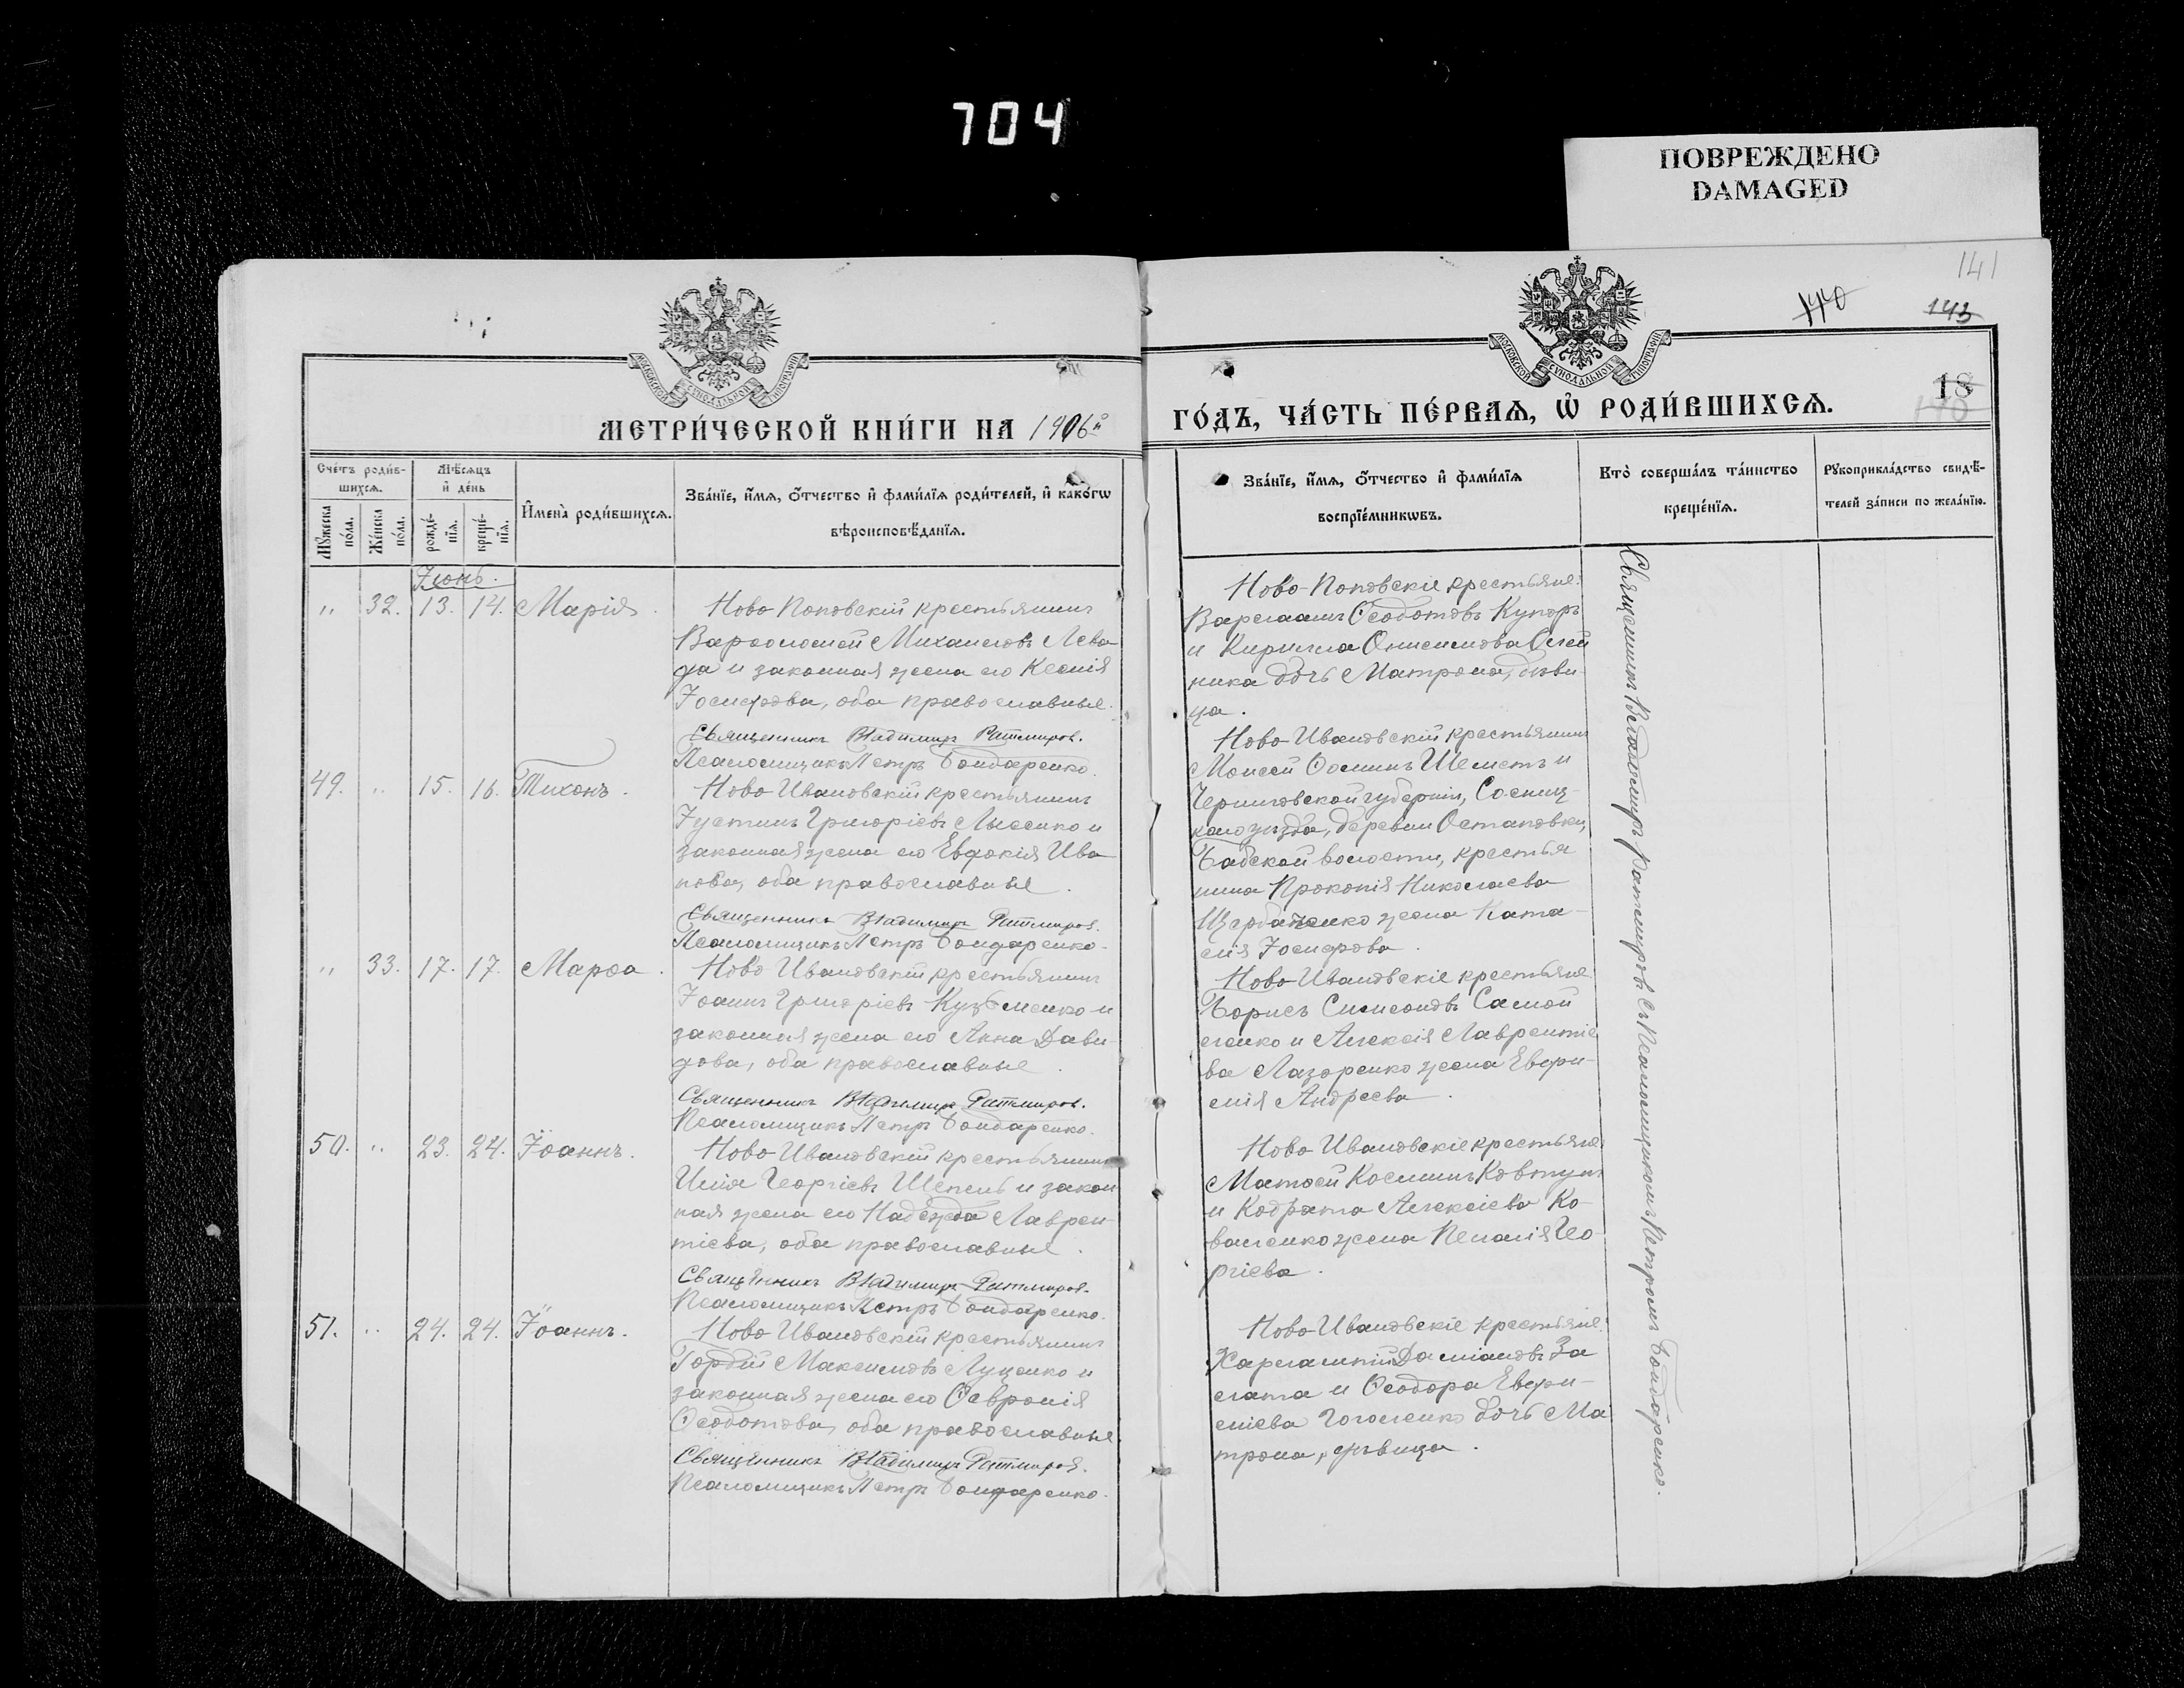 704
ПОВРЕЖДЕНО
DAMAGED
141
140
143
МОСКОВСКОЙ СѴНОДАЛЬНОЙ ТИПОГРАФІИ
МОСКОВСКОЙ СѴНОДАЛЬНОЙ ТИПОГРАФІИ
18
МЕТРИ́ЧЕСКОЙ КНИ́ГИ НА 1906й
ГО́ДЪ, ЧА́СТЬ ПЕ́РВАѦ, Ѡ҆ РОДИ́ВШИХСѦ.
Сче́тъ роди́в-
шихсѧ.
Мѣ́сѧцъ
и҆ де́нь
Мꙋ́жеска
по́ла.
Же́нска
по́ла.
рожде́-
нїѧ.
креще́-
нїѧ.
И҆мена̀ роди́вшихсѧ.
Зва́нїе, и҆́мѧ, ѻ҆́тчество и҆ фами́лїѧ роди́телей, и҆ како́гѡ
вѣроисповѣ́данїѧ.
Зва́нїе, и҆́мѧ, ѻ҆́тчество и҆ фами́лїѧ
воспрїе́мникѡвъ.
Кто̀ соверша́лъ та́инство
креще́нїѧ.
Рꙋкоприкла́дство свидѣ́-
телей за́писи по жела́нїю.
Іюнь.
" 32. 13. 14. Марія.
Ново Поповскій крестьянинъ
Варѳоломей Михаиловъ Лева-
да и законная жена его Ксенія
Іосифова, оба православные.
Священникъ Владимиръ Ратмировъ.
Псаломщикъ Петръ Бондаренко.
Ново-Поповскіе крестьяне:
Варлаамъ Ѳеодотовъ Куперъ
и Кирилла Онисимова Олей
ника дочь Матрона, дѣви-
ца.
49. " 15. 16. Тихонъ.
Ново Ивановскій крестьянинъ
Іустинъ Григоріевъ Лысенко и
законная жена его Евдокія Ива
нова, оба православные.
Священникъ Владимиръ Ратмировъ.
Псаломщикъ Петръ Бондаренко.
Ново-Ивановскій крестьянинъ
Моисей Ѳоминъ Шелестъ и
Черниговской губерніи, Сосниц-
каго уѣзда, деревни Остаповки,
Бабской волости, крестья
нина Прокопія Николаева
Щербаченко жена Ната-
лія Іосифова.
" 33. 17. 17. Марѳа.
Ново Ивановскій крестьянинъ
Іоаннъ Григоріевъ Кузьменко и
законная жена его Анна Дави-
дова, оба православные.
Священникъ Владимиръ Ратмировъ.
Псаломщикъ Петръ Бондаренко.
Ново-Ивановскіе крестьяне:
Борисъ Симеоновъ Самой
ленко и Алексія Лаврентіе
ва Лазоренко жена Евфи-
мія Андреева.
50. " 23. 24. Іоаннъ.
Ново Ивановскій крестьянинъ
Илія Георгіевъ Шепель и закон
ная жена его Надежда Лаврен-
тіева, оба православные.
Священникъ Владимиръ Ратмировъ.
Псаломщикъ Петръ Бондаренко.
Ново Ивановскіе крестьяне:
Матѳей Косминъ Ковтунъ
и Кодрата Алексіева Ко-
валенко жена Пелагія Гео-
ргіева.
51. " 24. 24. Іоаннъ.
Ново Ивановскій крестьянинъ
Гордій Максимовъ Луценко и
законная жена его Ѳевронія
Ѳеодотова, оба православные.
Священникъ Владимиръ Ратмировъ.
Псаломщикъ Петръ Бондаренко.
Ново-Ивановскіе крестьяне:
Харлампій Даміановъ За
лата и Ѳеодора Евфи-
міева Гоголенко дочь Ма
трона, дѣвица.
Священникъ Владимиръ Ратмировъ съ Псаломщикомъ Петромъ Бондаренко.